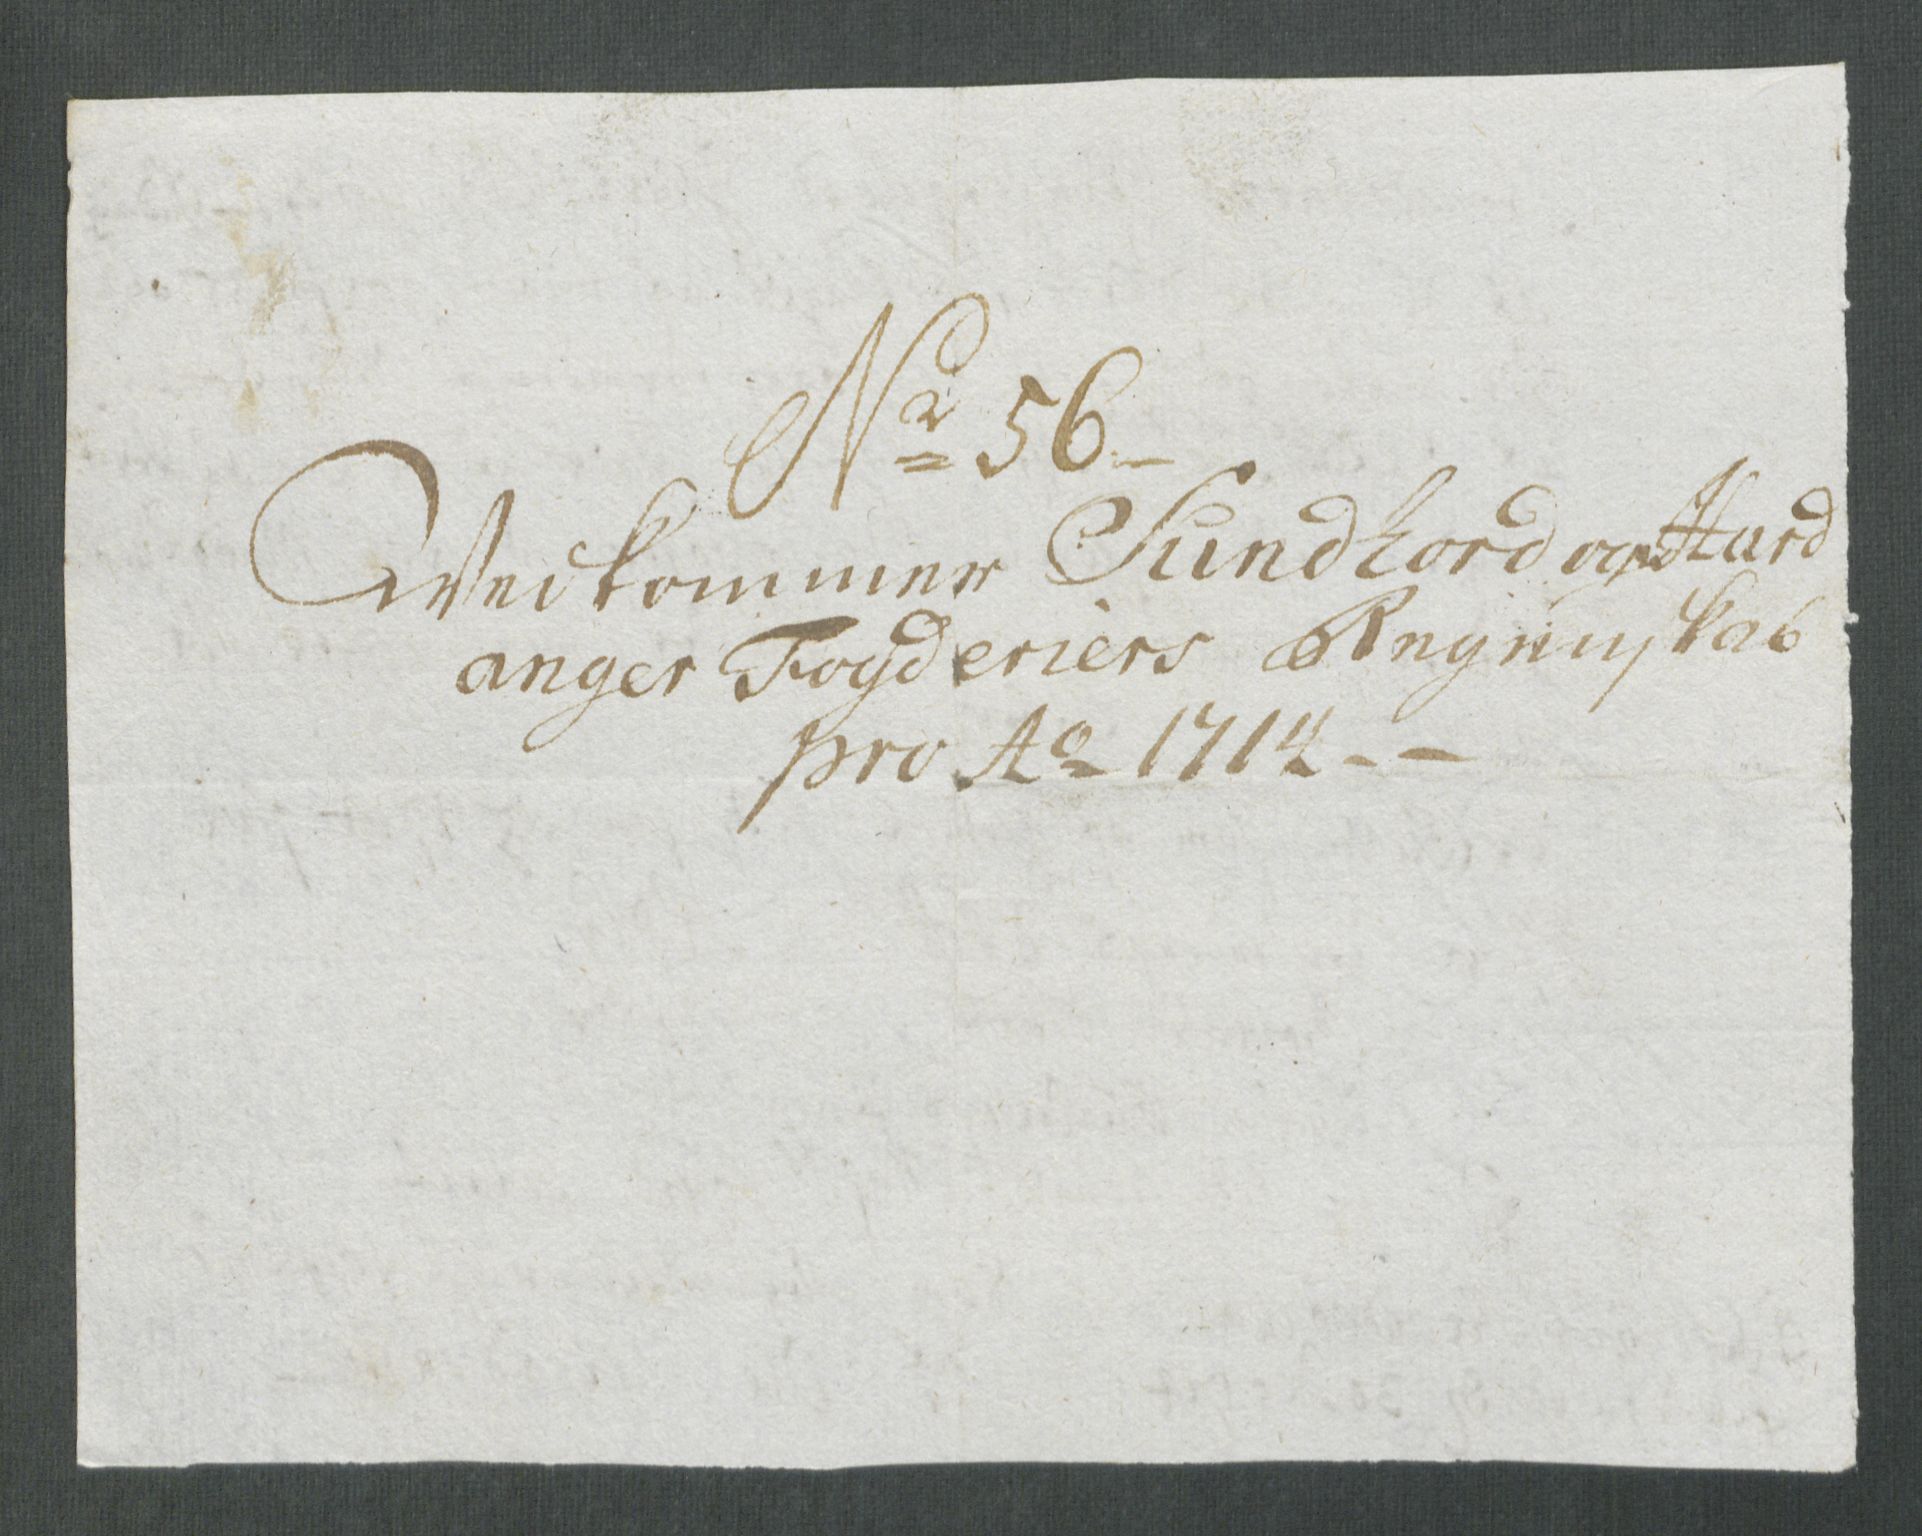 Nr 56
Vedkommer Sundhord og Hard
anger Fogderiers Regnskab
pro Ao 1714